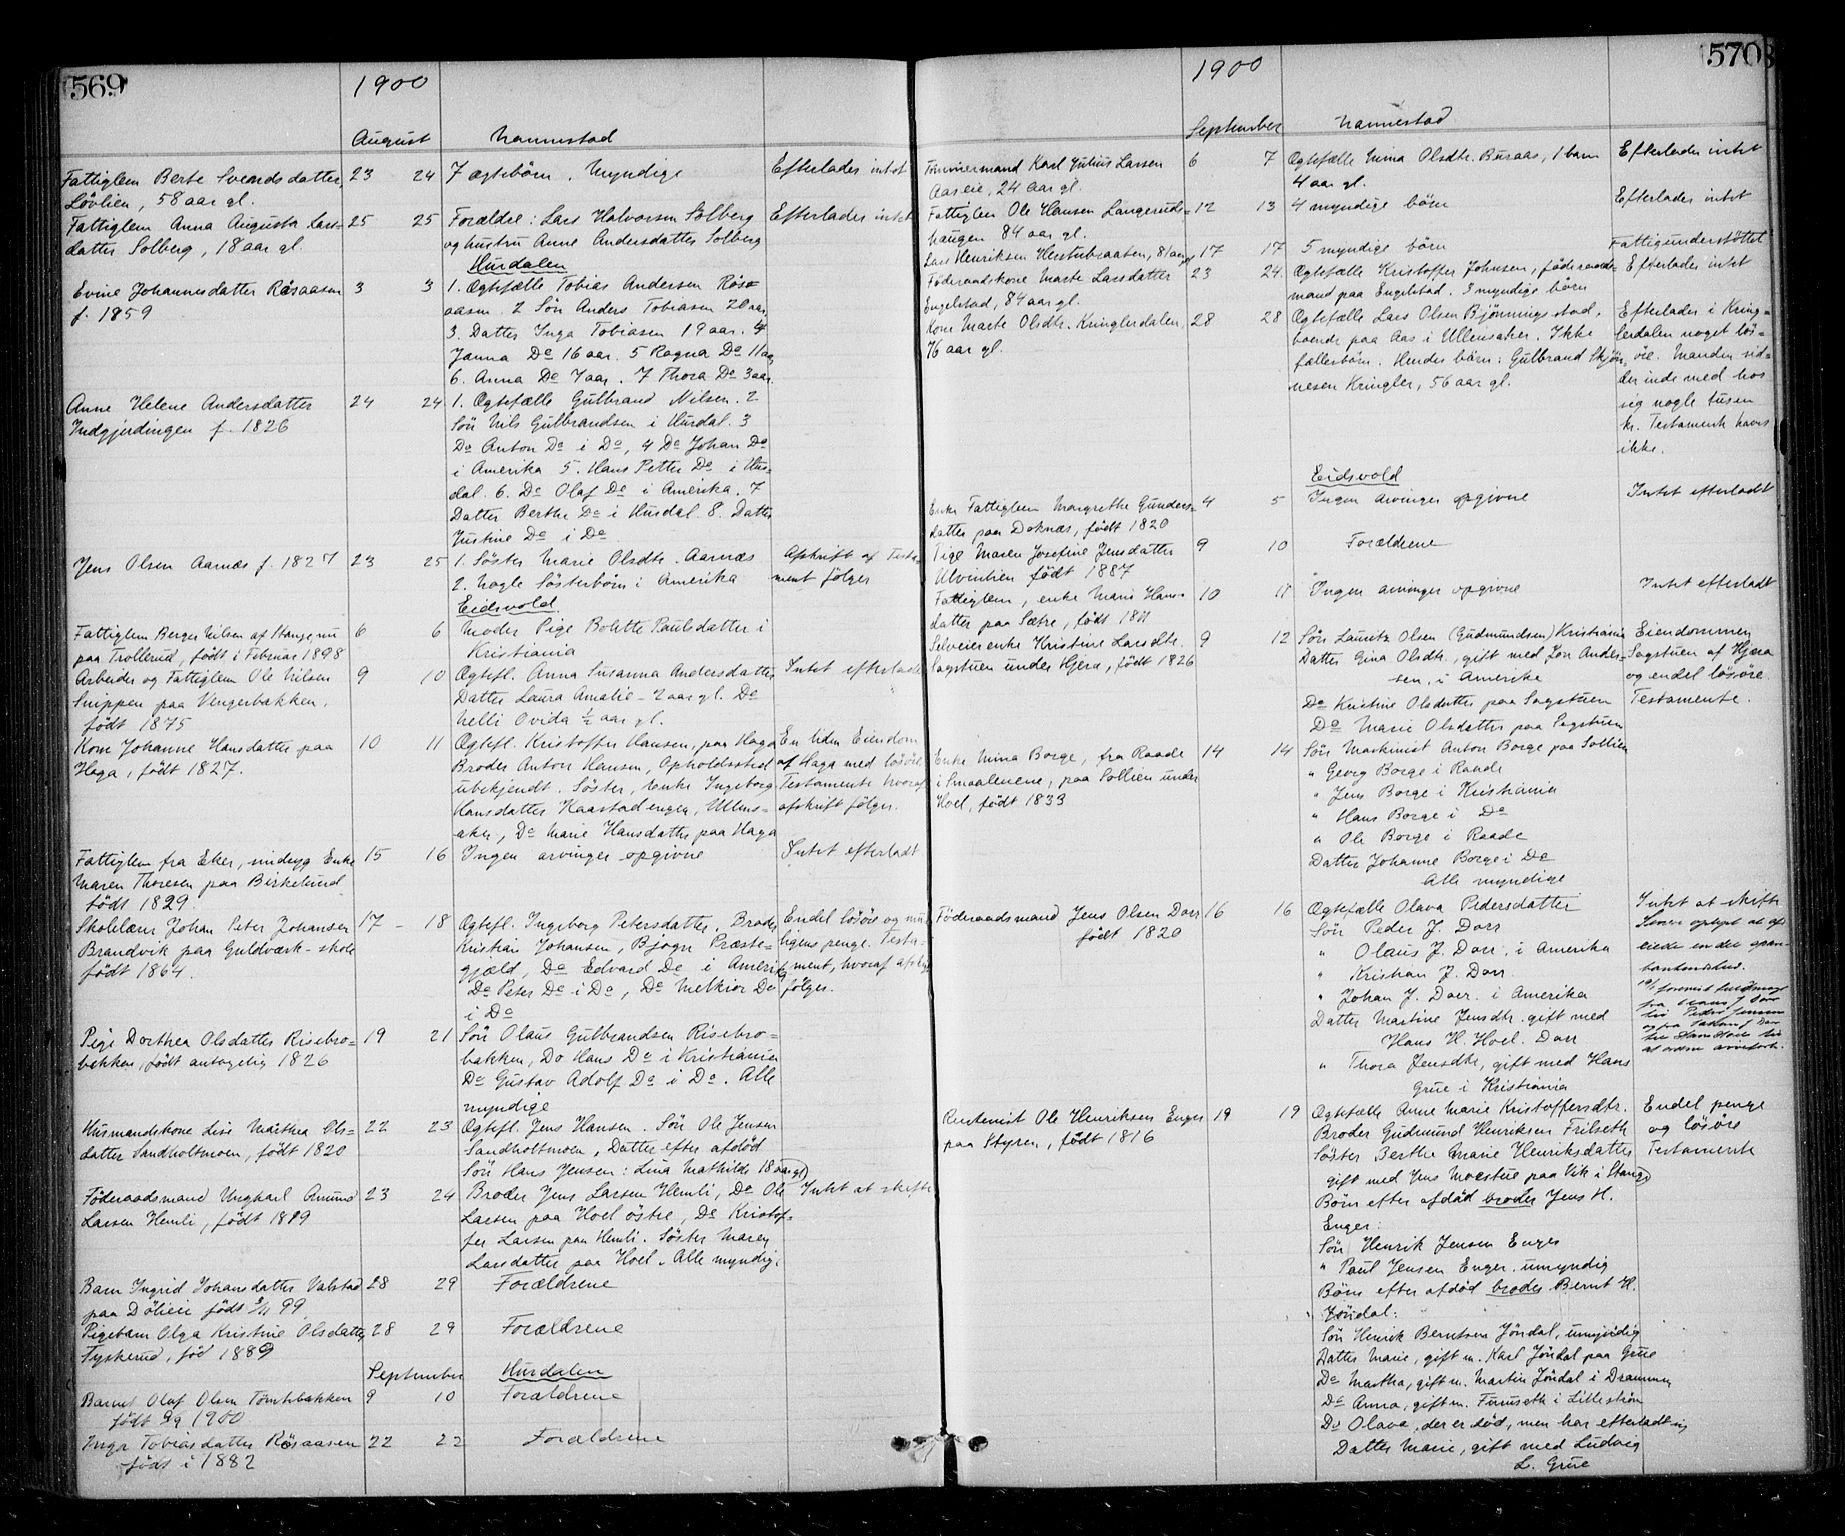 569
1900
August Nannestad
Fattiglem Berte Svendsdatter, 23 24 7 ægtebörn. Myndige Efterlades intet
Lövlien, 58 aar gl.
Fattiglem Anna Augusta Lars- 25 25 Forældre: Lars Halvorsen Solberg Efterlades intet
datter Solberg, 18 aar gl. og hustru Anne Andersdatter Solberg
Hurdalen
Evine Johannesdatter Rösaasen 3 3 1. Ægtefælle Tobias Andersen Rös-
f. 1859 aasen. 2 Sön Anders Tobiasen 20 aar
3. Datter Inga Tobiasen 19 aar. 4
Janna Do 16 aar. 5 Ragna Do 11 aar
6. Anna Do 7 aar. 7 Thora Do 3 aar.
Anne Helene Andersdatter 24 24 1. Ægtefælle Gulbrand Nilsen. 2
Indgjerdingen f. 1826 Sön Nils Gulbrandsen i Hurdal. 3
Do Anton Do i Do, 4 Do Johan Do
i Amerika 5. Hans Petter Do i Hur-
dal. 6. Do Olaf Do i Amerika. 7
Datter Berthe Do i Hurdal. 8. Datter
Justine Do i Do
Jens Olsen Aarnæs f. 1827 23 25 1. Söster Marie Olsdtr. Aarnæs Afskrift af Testa-
2. Nogle Sösterbörn i Amerika ment fölger
Eidsvold
Fattiglem Berger Nilsen af Stange, nu 6 6 Moder Pige Bolette Paulsdatter i
paa Trollerud, født i Februar 1898 Kristiania
Arbeider og Fattiglem Ole Nilsen 9 10 Ægtefl. Anna Susanna Andersdatter Intet efterladt
Snippen paa Vengerbakken, Datter Laura Amalie - 2 aar gl. Do
født 1875 Nelli Ovida ½ aar gl.
Kone Johanne Hansdatter paa 10 11 Ægtefl. Kristoffer Hansen, paa Haga En liden Eiendom
Haga, født 1827. Broder Anton Hansen, Opholdssted af Haga med lösöre
ubekjendt. Söster, Enke Ingeborg Testamente hvoraf
Hansdatter Haastadengen, Ullens- afskrift fölger.
aker, Do Marie Hansdatter paa Haga
Fattiglem fra Eker, indsyg Enke 15 16 Ingen arvinger opgivne Intet efterladt
Maren Thoresen paa Birkelund
født 1829.
Skolelærer Johan Peter Johansen 17 - 18 Ægtefl. Ingeborg Petersdatter, Broder Endel lösöre og
Brandvik paa Guldværk-skole Kristian Johansen, Bjogn Præste- penge. Testa-
født 1864. gjæld, Do Edvard Do i Amerika ment, hvoraf afskr
Do Peter Do i Do, Do Melkior Do fölges.
i Do
Pige Dorthea Olsdatter Risebro- 19 21 Sön Olaus Gulbrandsen Risebro-
bakken, født antagelig 1826 bakken, Do Hans Do i Kristiania
Do Gustav Adolf Do i Do. Alle
myndige
Husmandskone Lise Marthea Ols- 22 23 Ægtefl. Jens Hansen. Sön Ole Jensen
datter Sandholtmoen, født 1820 Sandholtmoen, Datter efter afdöd
Sön Hans Jensen: Lina Mathilde 18 aar gl
Föderaadsmand Ungkarl Amund 23 24 Broder Jens Larsen Hemli, Do Ole Intet at skifte
Larsen Hemli, født 1819 Larsen paa Hoel östre, Do Kristof-
fer Larsen paa Hemli. Söster Maren
Larsdatter paa Hoel. Alle myndige
Barn Ingrid Johansdatter Valstad 28 29 Forældrene
paa Dölieie født 3/11 99
Pigebarn Olga Kristine Olsdatter 28 29 Forældrene
Tyskerud, föd 1889
September Hurdalen
Barnet Olaf Olsen Tömtebakken 9 10 Forældrene
født 9/9 1900
Inga Tobiasdatter Rösaasen 22 22 Forældrene
født i 1882
570
1900
September Nannestad
Tömmermand Karl Julius Larsen 6 7 Ægtefælle Mina Olsdtr. Buraas, 1 barn Efterlades intet
Aaseie, 24 aar gl. 4 aar gl.
Fattiglem Ole Hansen Langeruds- 12 13 4 myndige börn Efterlades intet
haugen 84 aar gl.
Lars Henriksen Herstubraaten, 81 aar gl 17 17 5 myndige börn Fattigunderstöttet
Föderaadskone Marte Larsdatter 23 24 Ægtefælle Kristoffer Johnsen, föderaads- Efterlades intet
Engelstad, 84 aar gl. mand paa Engelstad. 3 myndige börn
Kone Marte Olsdtr. Kringlerdalen, 28 28 Ægtefælle Lars Olsen Bjönningsstad, Efterlades i Kring-
76 aar gl. boende paa Aas i Ullensaker. Ikke lerdalen noget lös-
fællesbörn. Hendes börn: Gulbrand Skjön- öre. Manden sid-
nesen Kringler, 56 aar gl. der inde med hos
sig nogle tusen
kr. Testament haves
ikke.
Eidsvold
Enke Fattiglem Margrethe Gunders- 4 5 Ingen arvinger opgivne Intet efterladt
datter paa Doknæs, født 1820
Pige Maren Josefine Jensdatter 9 10 Forældrene
Ulvinlien født 1887
Fattiglem, enke Marie Hans- 10 11 Ingen arvinger opgivne Intet efterladt
datter paa Sætre, født 1811
Selveierenke Kristine Larsdtr. 9 12 Sön Lauritz Olsen (Gudmundsen) Kristiania Eiendommen
Sagstuen under Hjera, født 1826 Datter Gina Olsdtr., gift med Jon Ander- Sagstuen af Hjæra
sen, i Amerika og endel lösöre.
Do Kristine Olsdatter paa Sagstuen Testamente.
Do Marie Olsdatter paa Sagstuen
Enke Mina Borge, fra Raade 14 14 Sön Maskinist Anton Borge paa Sollien
i Smaalenene, paa Sollien under " Georg Borge i Raade
Hoel, født 1833 " Jens Borge i Kristiania
" Hans Borge i Do
" Ole Borge i Raade
Datter Johanne Borge i Do
Alle myndige
Föderaadsmand Jens Olsen Dorr 16 16 Ægtefælle Olava Pedersdatter Intet at skifte
født 1820 Sön Peder J. Dorr
" Olaus J. Dorr. i Amerika
" Kristian J. Dorr.
" Johan J. Dorr. i Amerika
Datter Martine Jensdtr. gift med
Hans H. Hoel. Dorr
" Thora Jensdtr, gift med Hans
Grue i Kristiania
Rentenist Ole Henriksen Enger 19 19 Ægtefælle Anne Marie Kristoffersdtr. Endel penge
paa Styren, født 1816 Broder Gudmund Henriksen Frilseth og lösöre
Söster Berthe Marie Henriksdatter Testamente
gift med Jens Moestue paa Vik i Stange
Börn efter afdöd broder Jens H.
Enger:
Sön Henrik Jensen Enger
" Paul Jensen Enger. umyndig
Börn efter afdöd broder Bernt H.
Jöndal:
Sön Henrik Berntsen Jöndal, umyndig
Datter Marie, gift m. Karl Jöndal paa Grue
Do Martha, gift m. Martin Jöndal i Drammen
Do Anna, gift m. Furuseth i Lilleström
Do Olava, der er död, men har efterladt sig
Datter Marie, gift med Ludvig
L. Grue